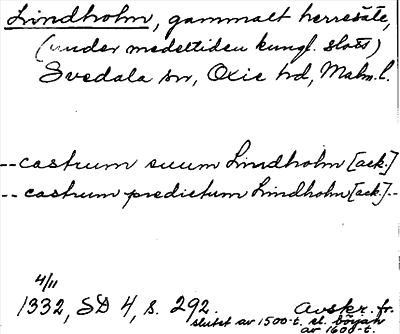 Lindholm, gammalt herresäte,
(under medeltiden kungl. slott)
Svedala sn, Oxie hd, Malm. l.
-- castrum suum Lindholm [ack.]
-- castrum predictum Lindholm [ack.] --
4/11
1332, SD 4, s. 292. Avskr. fr.
slutet av 1500-t. el. början
av 1600-t.